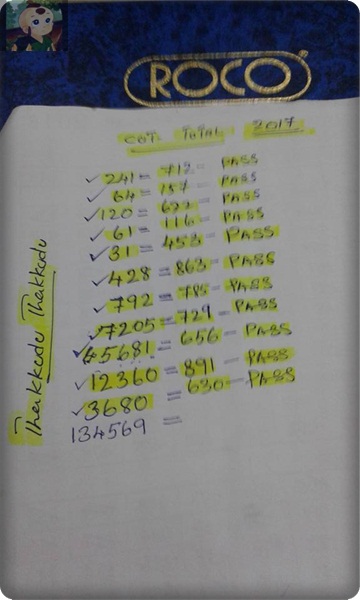 ROCO
CUT TOTAL 2017
241 = 712 - PASS
64 = 157 - PASS
120 = 622 - PASS
61 = 116 - PASS
31 = 453 - PASS
428 = 863 - PASS
792 = 785 - PASS
7205 = 729 - PASS
45681 = 656 - PASS
12360 = 891 - PASS
3680 = 630 - PASS
134569 =
Thakkudu Thakkodu